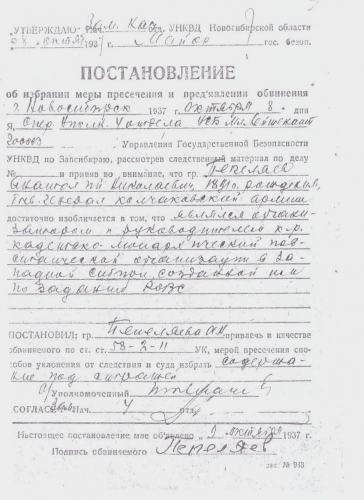 „УТВЕРЖДАЮ" Зам. Нач. УНКВД Новосибирской области
8 октября 1937 Майор гос. безоп.
ПОСТАНОВЛЕНИЕ
об избрании меры пресечения и предъявлении обвинения
г. Новосибирск 1937 г. октября 8 дня
Я, Опер. Уполн. 4 отдела УГБ Мл. Лейтенант
Управления Государственной Безопасности
УНКВД по Запсибкраю, рассмотрев следственный материал по делу
№ и приняв во внимание, что гр. Пепеляев
Анатолий Николаевич, 1891 г. рождения,
Генерал колчаковской армии
достаточно изобличается в том, что являлся органи-
затором и руководителем к.р.
кадетско-монархической пов-
станческой организации в За-
падной Сибири, созданной им
по заданию РОВС
ПОСТАНОВИЛ: гр. Пепеляева А.Н. привлечь в качестве
обвиняемого по ст. ст. 58-2-11 УК, мерой пресечения спо-
собов уклонения от следствия и суда избрать содержа-
ние под стражей
О/Уполномоченный
СОГЛАСЕН: Нач. 4 отд.
Настоящее постановление мне об'явлено 9 октября 1937 г.
Подпись обвиняемого Пепеляев
зак. № 943